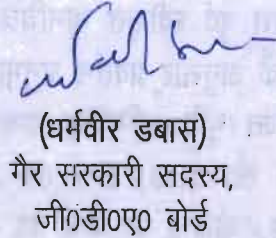 (धर्मवीर डबास)
गैर सरकारी सदस्य,
जी0डी0ए0 बोर्ड